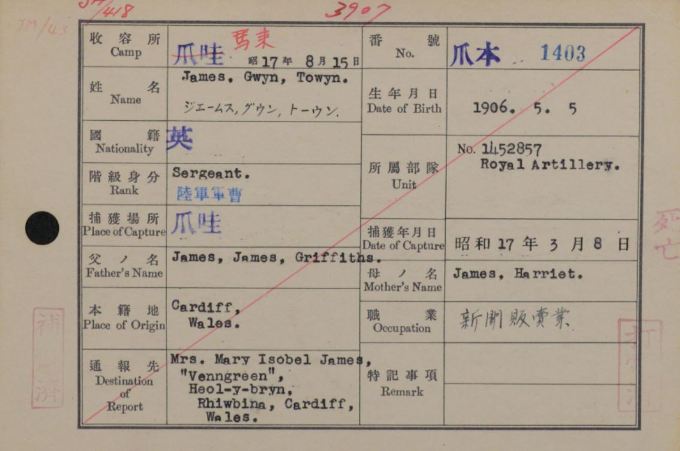 3907
/418
JM/43
收容所
Camp
爪哇
馬來
昭17年 8月15日
番號
No.
爪本 1403
姓名
Name
James. Gwyn, Towyn.
ジエームス, グウン, トーウン.
生年月日
Date of Birth
1906. 5. 5
國籍
Nationality
英
所屬部隊
Unit
No. 1452857
Royal Artillery.
階級身分
Rank
Sergeant.
陸軍軍曹
捕獲場所
Place of Capture
爪哇
捕獲年月日
Date of Capture
昭和17年3月8日
父ノ名
Father's Name
James, James, Griffiths.
母ノ名
Mother's Name
James, Harriet.
本籍地
Place of Origin
Cardiff,
Wales.
職業
Occupation
新聞販賣業
通報先
Destination
of
Report
Mrs. Mary Isobel James,
"Venngreen",
Heol-y-bryn,
Rhiwbina, Cardiff,
Wales.
特記事項
Remark
死亡